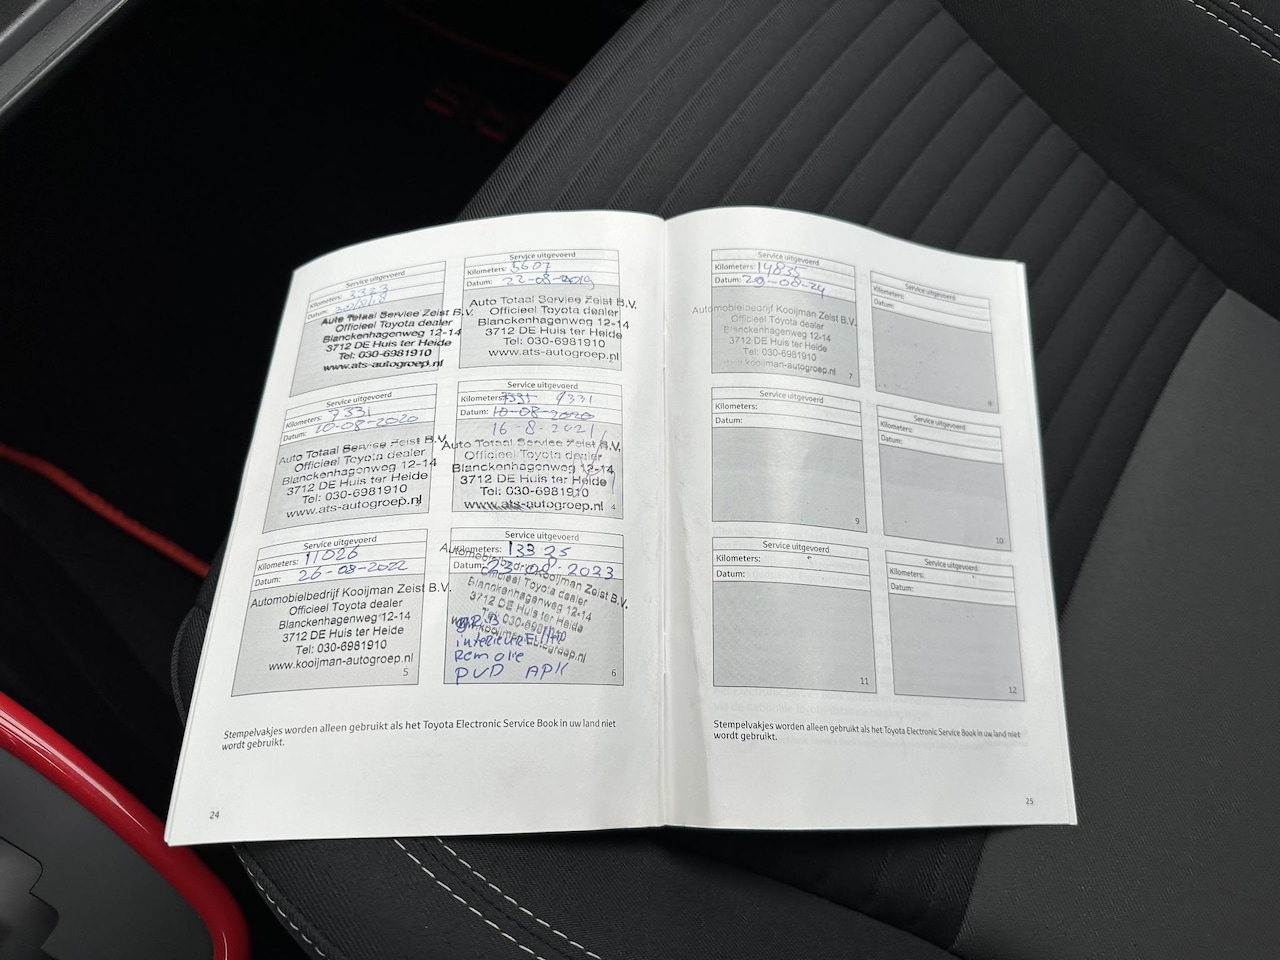 Service uitgevoerd
Kilometers: 3323
Datum:
Auto Totaal Service Zeist B.V.
Officieel Toyota dealer
Blanckenhagenweg 12-14
3712 DE Huis ter Heide
Tel: 030-6981910
www.ats-autogroep.nl
Service uitgevoerd
Kilometers: 5607
Datum: 22-08-2019
Auto Totaal Service Zeist B.V.
Officieel Toyota dealer
Blanckenhagenweg 12-14
3712 DE Huis ter Heide
Tel: 030-6981910
www.ats-autogroep.nl
Service uitgevoerd
Kilometers: 7331
Datum: 10-08-2020
Auto Totaal Service Zeist B.V.
Officieel Toyota dealer
Blanckenhagenweg 12-14
3712 DE Huis ter Heide
Tel: 030-6981910
www.ats-autogroep.nl
Service uitgevoerd
Kilometers: 9331
Datum: 10-08-2020
16-8-2021
Auto Totaal Service Zeist B.V.
Officieel Toyota dealer
Blanckenhagenweg 12-14
3712 DE Huis ter Heide
Tel: 030-6981910
www.ats-autogroep.nl
4
Service uitgevoerd
Kilometers: 11026
Datum: 26-08-2022
Automobielbedrijf Kooijman Zeist B.V.
Officieel Toyota dealer
Blanckenhagenweg 12-14
3712 DE Huis ter Heide
Tel: 030-6981910
www.kooijman-autogroep.nl
5
Service uitgevoerd
Kilometers: 13325
Datum: 23-08-2023
Automobielbedrijf Kooijman Zeist B.V.
Officieel Toyota dealer
Blanckenhagenweg 12-14
3712 DE Huis ter Heide
Tel: 030-6981910
www.kooijman-autogroep.nl
interieurfilter
Remolie
PVD APK
6
Stempelvakjes worden alleen gebruikt als het Toyota Electronic Service Book in uw land niet
wordt gebruikt.
24
Service uitgevoerd
Kilometers: 14835
Datum: 29-08-24
Automobielbedrijf Kooijman Zeist B.V.
Officieel Toyota dealer
Blanckenhagenweg 12-14
3712 DE Huis ter Heide
Tel: 030-6981910
www.kooijman-autogroep.nl
7
Service uitgevoerd
Kilometers:
Datum:
8
Service uitgevoerd
Kilometers:
Datum:
9
Service uitgevoerd
Kilometers:
Datum:
10
Service uitgevoerd
Kilometers:
Datum:
11
Service uitgevoerd
Kilometers:
Datum:
12
Stempelvakjes worden alleen gebruikt als het Toyota Electronic Service Book in uw land niet
wordt gebruikt.
25